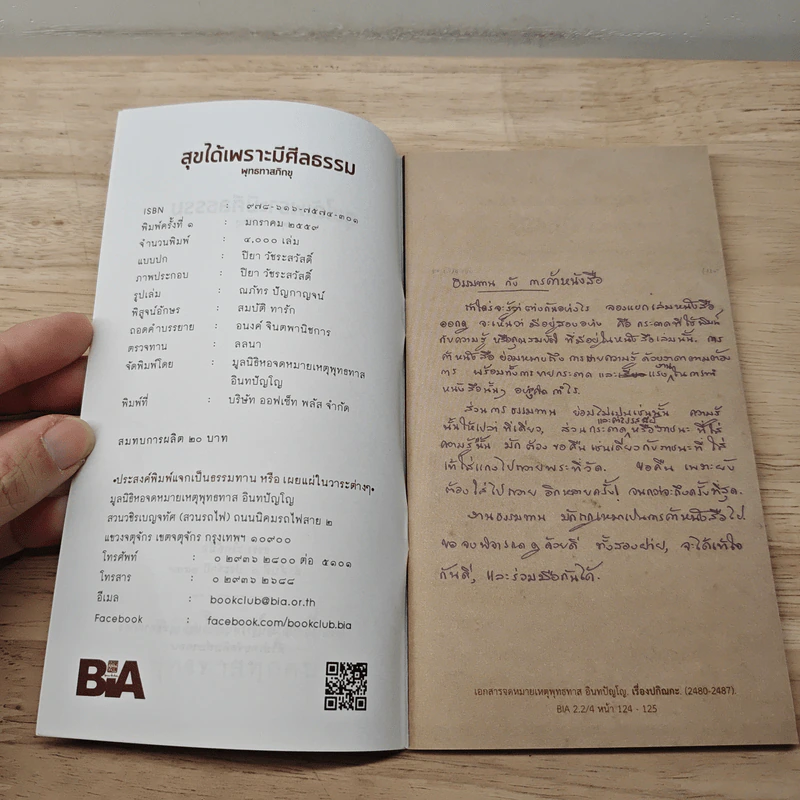 สุขได้เพราะมีศีลธรรม
พุทธทาสภิกขุ
ISBN : ๙๗๘-๖๑๖-๗๕๗๔-๓๐๑
พิมพ์ครั้งที่ ๑ : มกราคม ๒๕๕๙
จำนวนพิมพ์ : ๔,๐๐๐ เล่ม
แบบปก : ปิยา วัชระสวัสดิ์
ภาพประกอบ : ปิยา วัชระสวัสดิ์
รูปเล่ม : ณภัทร ปัญกาญจน์
พิสูจน์อักษร : สมบัติ ทารัก
ถอดคำบรรยาย : อนงค์ จินตพานิชการ
ตรวจทาน : ลลนา
จัดพิมพ์โดย : มูลนิธิหอจดหมายเหตุพุทธทาส
อินทปัญโญ
พิมพ์ที่ : บริษัท ออฟเซ็ท พลัส จำกัด
สมทบการผลิต ๒๐ บาท
•ประสงค์พิมพ์แจกเป็นธรรมทาน หรือ เผยแผ่ในวาระต่างๆ•
มูลนิธิหอจดหมายเหตุพุทธทาส อินทปัญโญ
สวนวชิรเบญจทัศ (สวนรถไฟ) ถนนนิคมรถไฟสาย ๒
แขวงจตุจักร เขตจตุจักร กรุงเทพฯ ๑๐๙๐๐
โทรศัพท์ : ๐ ๒๙๓๖ ๒๘๐๐ ต่อ ๕๑๐๑
โทรสาร : ๐ ๒๙๓๖ ๒๖๘๘
อีเมล : bookclub@bia.or.th
Facebook : facebook.com/bookclub.bia
BIA
ธรรมทาน กับ การค้าหนังสือ
ถ้าใครจะรู้ว่าต่างกันอย่างไร ลองแยกเล่มหนังสือ
ออกดู จะเห็นว่ามีอยู่สองอย่าง คือ กระดาษที่ใช้พิมพ์
กับความรู้ ที่มีอยู่ในหนังสือเล่มนั้น. การ
ค้าหนังสือ ย่อมหมายถึง การขายความรู้ ด้วยราคาตามต้อง
การ พร้อมทั้งการขายกระดาษ และแรงงานในการทำ
หนังสือนั้นๆ กำไร.
ส่วนการธรรมทาน ย่อมไม่เป็นเช่นนั้น ความรู้
นั้นให้เปล่า ทีเดียว, ส่วนกระดาษ หรือภาชนะ ที่ใส่
ความรู้นั้น มักต้องขอคืน เช่นเดียวกับภาชนะที่ใส่
ใส่แกงไปถวายพระที่วัด. ขอคืน เพราะยัง
ต้องใส่ไปถวาย อีกหลายครั้ง จนกว่าจะถึงครั้งที่สุด.
งานธรรมทาน มักถูกเหมาเป็นการค้าหนังสือไป
ขอจงพิจารณาดูด้วยดี ทั้งสองฝ่าย, จะได้เข้าใจ
กันดี, และร่วมมือกันได้.
เอกสารจดหมายเหตุพุทธทาส อินทปัญโญ. เรื่องปกิณกะ. (2480-2487).
BIA 2.2/4 หน้า 124 - 125